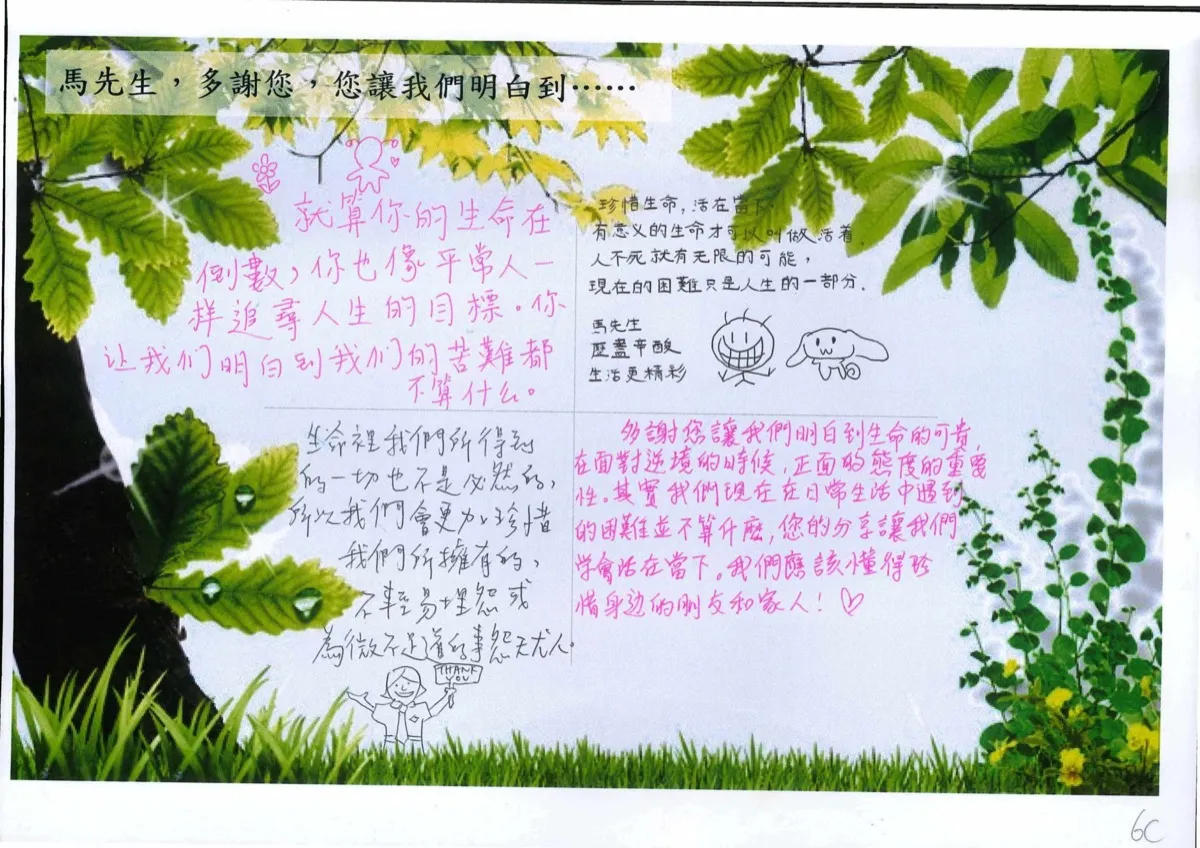 馬先生，多謝您，您讓我們明白到……
就算你的生命在
倒數，你也像平常人一
样追尋人生的目標。你
让我们明白到我们的苦難都
不算什么。
珍惜生命，活在當下.
有意义的生命才可以叫做活着.
人不死就有无限的可能，
現在的困難只是人生的一部分.
馬先生
歷盡辛酸
生活更精彩
生命裡我們所得到
的一切也不是必然的，
所以我們會更加珍惜
我們所擁有的，
不輕易埋怨或
為微不足道的事怨天尤人.
THANK
YOU
多謝您讓我們明白到生命的可貴,
在面對逆境的時候,正面的態度的重要
性。其實我們現在在日常生活中遇到
的困難並不算什麽,您的分享讓我們
学會活在當下。我們應該懂得珍
惜身边的朋友和家人！
6C